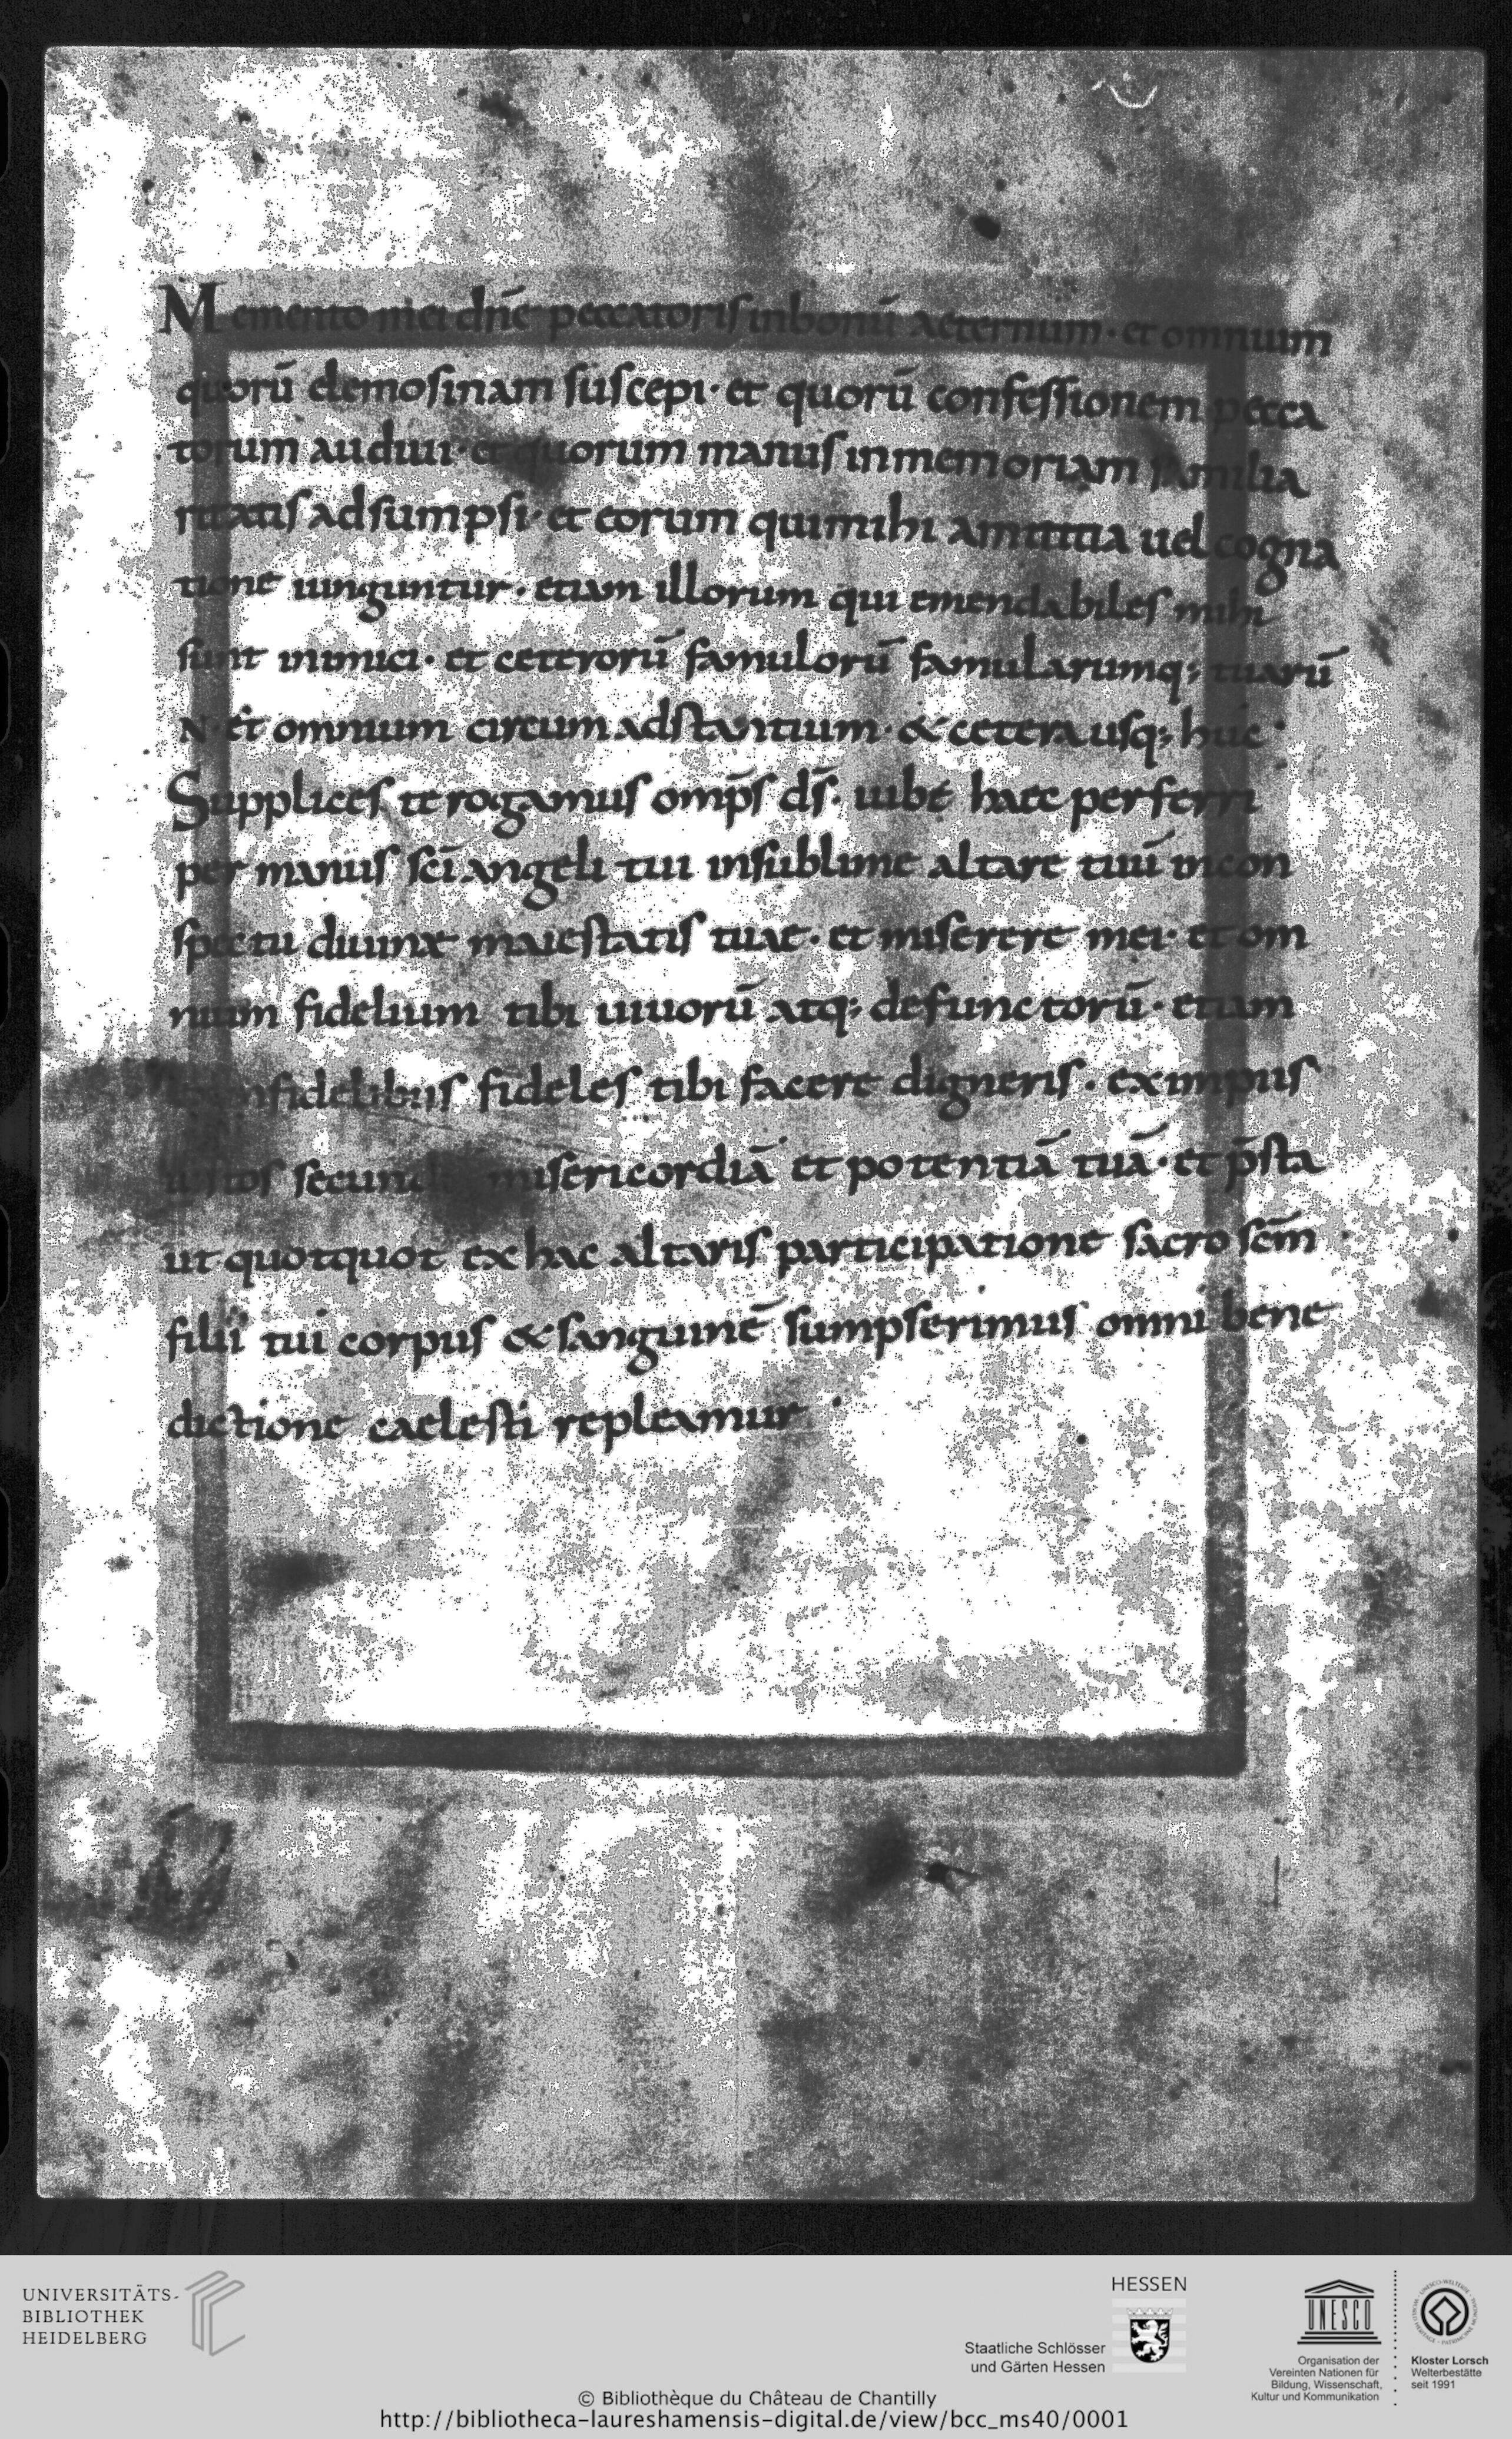 Memento mei dnē peccatoris in bonū aeternum · et omnium
quorū elemosinam suscepi · et quorū confessionem pecca
torum audiui · et quorum manus in memoriam familia
ritatis adsumpsi · et eorum qui mihi amicitia uel cogna
tione iunguntur · etiam illorum qui emendabiles mihi
sunt inimici · et ceterorū famulorū famularumq; tuarū
N · et omnium circum adstantium · & cetera usq; huc ·
Supplices te rogamus omp̄s ds̄ · iube haec perferri
per manus sc̄i angeli tui in sublime altare tuū in con
spectu diuinae maiestatis tuae · et miserere mei · et om
nium fidelium tibi uiuorū atq; defunctorū · etiam
infidelibus fideles tibi facere digneris · ex impiis
iustos secund misericordiā et potentiā tuā · et p̄sta
ut quotquot ex hac altaris participatione sacro sc̄m
filii tui corpus & sanguinē sumpserimus omni bene
dictione caelesti repleamur ·
UNIVERSITÄTS-
BIBLIOTHEK
HEIDELBERG
HESSEN
Staatliche Schlösser
und Gärten Hessen
UNESCO
Organisation der
Vereinten Nationen für
Bildung, Wissenschaft,
Kultur und Kommunikation
Kloster Lorsch
Welterbestätte
seit 1991
© Bibliothèque du Château de Chantilly
http://bibliotheca-laureshamensis-digital.de/view/bcc_ms40/0001